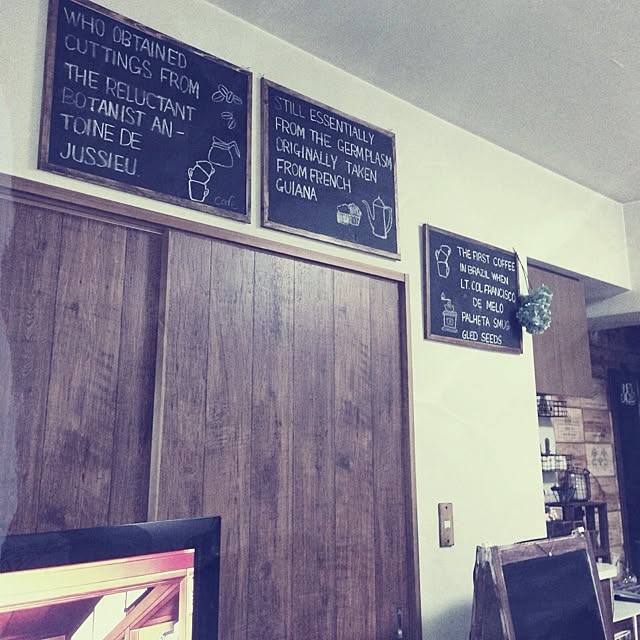 WHO OBTAINED
CUTTINGS FROM
THE RELUCTANT
BOTANIST AN-
TOINE DE
JUSSIEU
cafe
STILL ESSENTIALLY
FROM THE GERMPLASM
ORIGINALLY TAKEN
FROM FRENCH
GUIANA
THE FIRST COFFEE
IN BRAZIL WHEN
LT. COL. FRANCISCO
DE MELO
PALHETA SMUG
GLED SEEDS